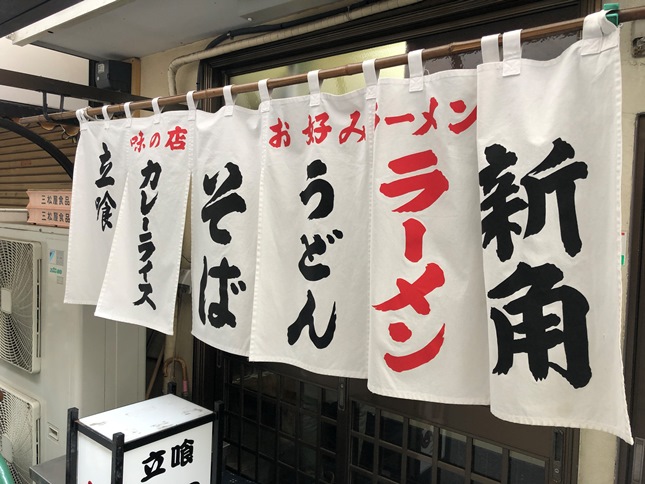 新角
ラーメン
ラーメン
お好み
うどん
そば
味の店
カレーライス
立喰
三松屋食品
三松屋食品
立喰